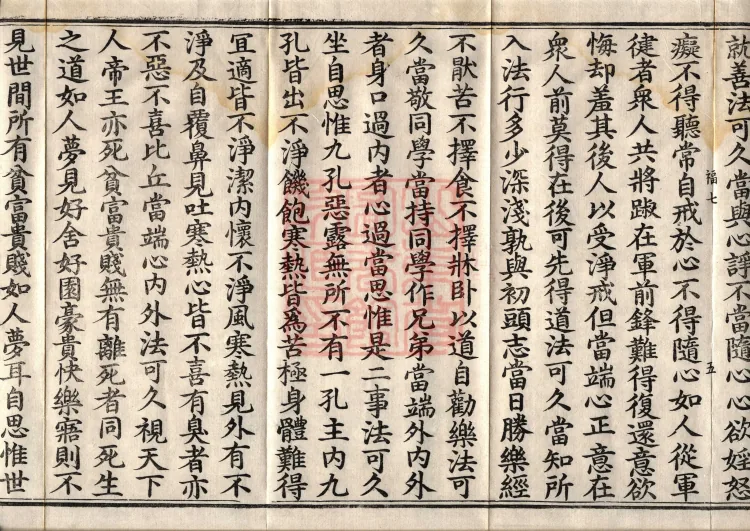 就善法可久當與心諍不當隨心心欲婬怒
癡不得聽常自戒於心不得隨心如人從軍
福七 五
健者衆人共將踧在軍前鋒難得復還意欲
悔却羞其後人以受淨戒但當端心正意在
衆人前莫得在後可先得道法可久當知所
入法行多少深淺孰與初頭志當日勝樂經
不猒苦不擇食不擇牀卧以道自勸樂法可
久當敬同學當持同學作兄弟當端外內外
者身口過內者心過當思惟是二事法可久
坐自思惟九孔惡露無所不有一孔主內九
孔皆出不淨饑飽寒熱皆爲苦極身體難得
冝適皆不淨潔內懷不淨風寒熱見外有不
淨及自覆鼻見吐寒熱心皆不喜有臭者亦
不惡不喜比丘當端心內外法可久視天下
人帝王亦死貧富貴賤無有離死者同死生
之道如人夢見好舍好園豪貴快樂寤則不
見世間所有貧富貴賤如人夢耳自思惟世